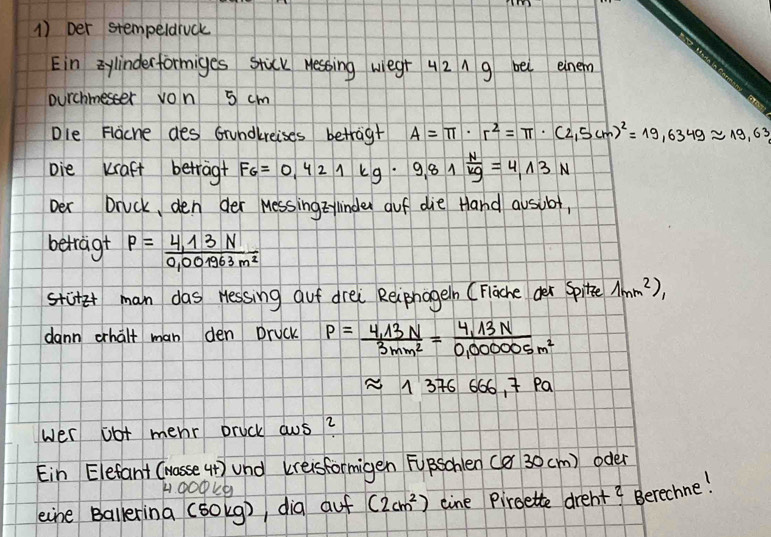 1) Der Stempeldruck
Ein zylinderförmiges Stück Messing wiegt 421 g bei einem
Durchmesser von 5 cm
Die Fläche des Grundkreises beträgt A = π · r² = π · (2,5cm)² = 19,6349 ≈ 19,63
Die Kraft beträgt FG = 0,421 kg · 9,81 N/kg = 4,13 N
Der Druck, den der Messingzylinder auf die Hand ausübt,
beträgt P = 4,13 N / 0,001963 m²
Stützt man das Messing auf drei Reißnägeln (Fläche der Spitze 1mm²),
dann erhält man den Druck P = 4,13 N / 3mm² = 4,13 N / 0,000005 m²
≈ 1 376 666,7 Pa
Wer übt mehr Druck aus?
Ein Elefant (Masse 4t) und kreisförmigen Fußsohlen (Ø 30cm) oder
4000kg
eine Ballerina (50kg), die auf (2cm²) eine Piroette dreht? Berechne!